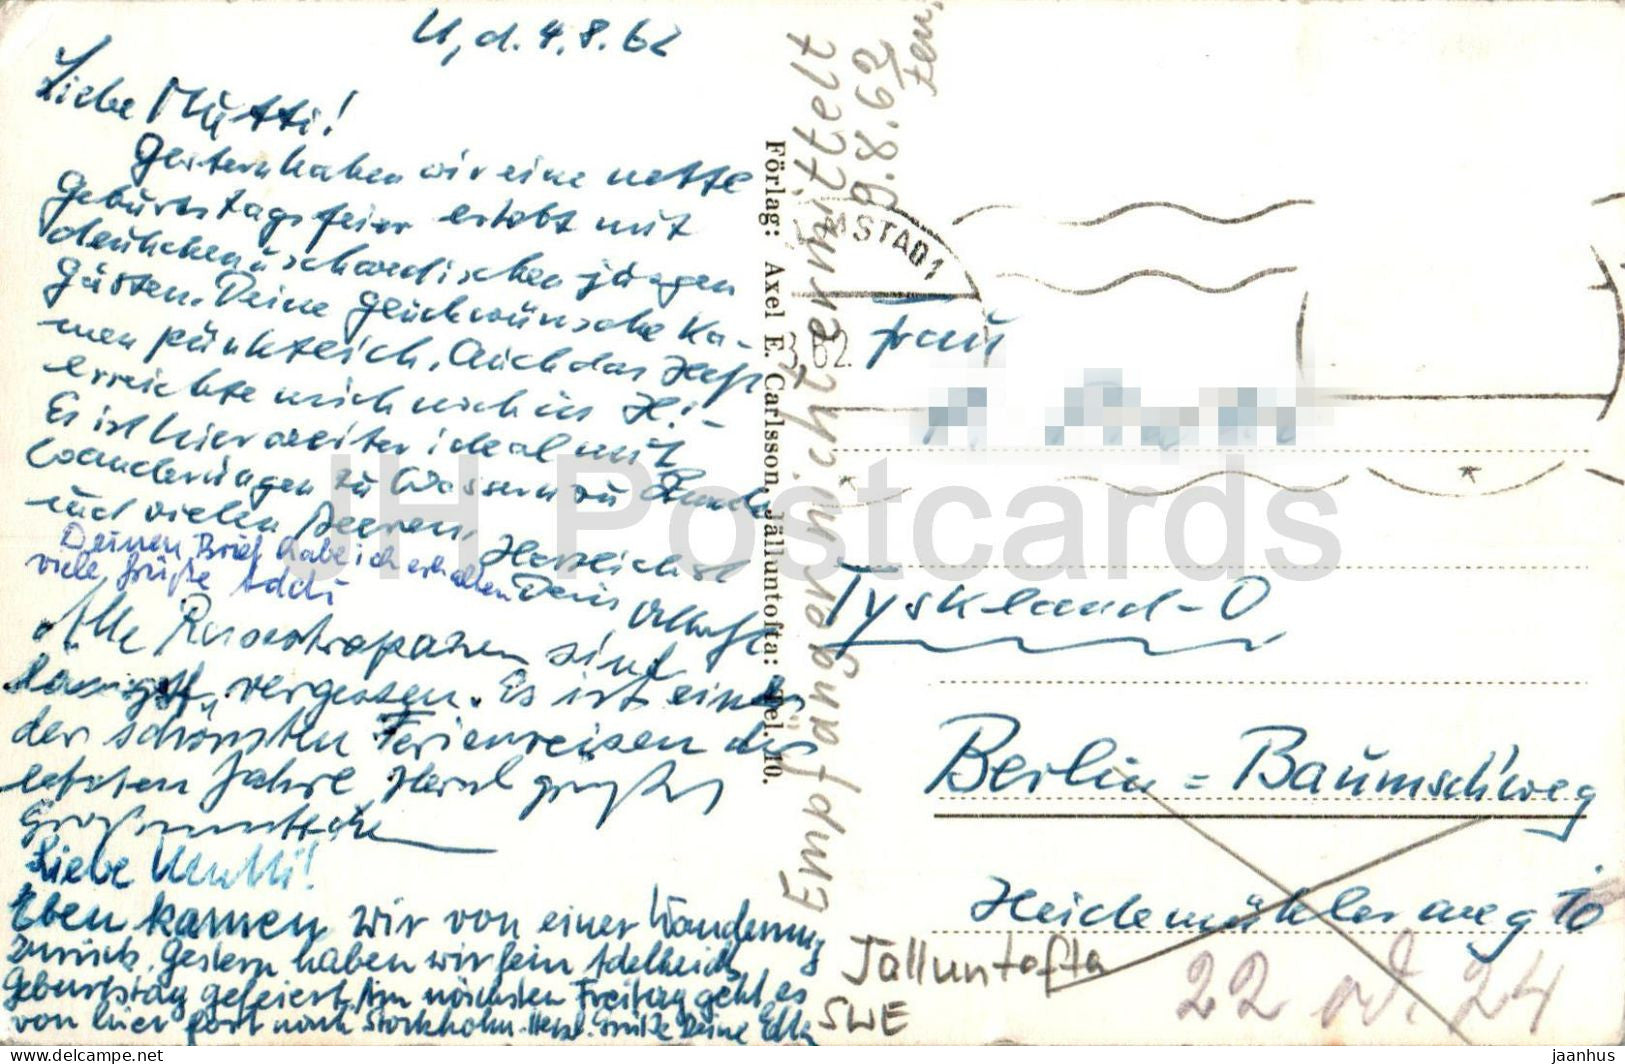 U, d. 4.8.62
Liebe Mutti!
Gestern haben wir eine nette
Geburtstagsfeier erlebt mit
deutschen u schwedischen jungen
Gästen. Deine Glückwünsche ka-
men pünktlich. Auch das Heft
erreichte mich noch in H.! -
Es ist hier weiter ideal mit
Wanderungen zu Wasser u zu Lande
und vielen Beeren. Herzlichst
Deinen Brief habe ich erhalten Dein
viele Grüße Addi
Alle Reisestrapazen sind
längst vergessen. Es ist eine
der schönsten Ferienreisen der
letzten Jahre. Herzl grüßt
Großmuttchen
Liebe Mutti!
Eben kamen wir von einer Wanderung
zurück. Gestern haben wir fein Adelheids
Geburtstag gefeiert. Am nächsten Freitag geht es
von hier fort nach Stockholm. Herzl. Grüße Deine
Förlag: Axel E. Carlsson, Jälluntofta: Tel. 10.
Empfänger nicht zu ermitteln
9.8.62
MSTAD 1
8.62.
Frau
Tyskland-O
Berlin = Baumsch'weg
Heidemühlerweg 10
Jälluntofta
SWE
22 24
JH Postcards
www.delcampe.net
jaanhus